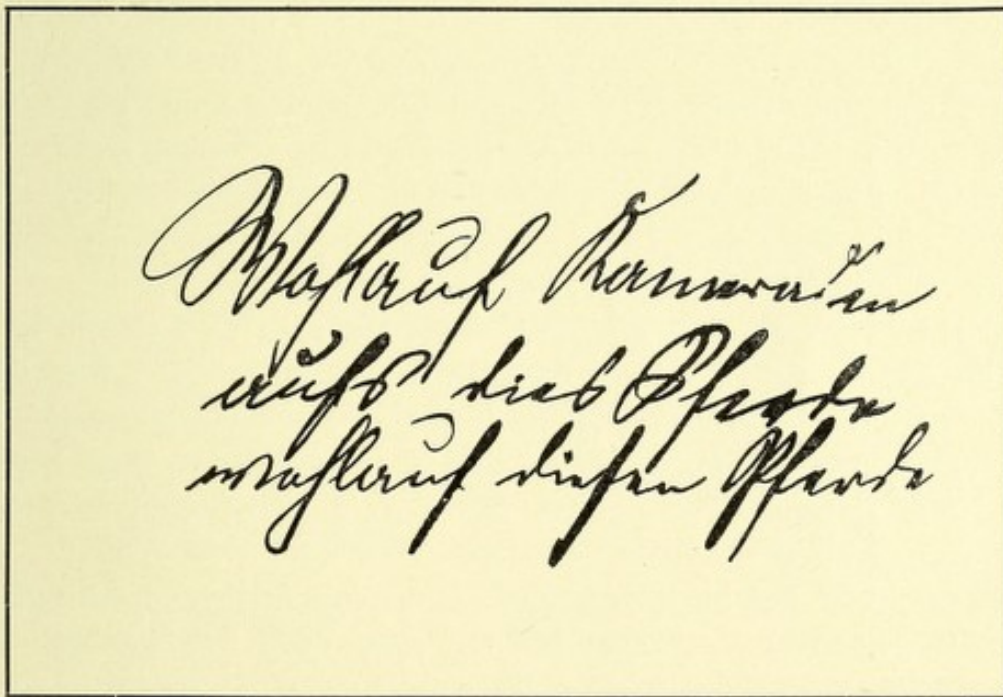 Wohlauf Kameraden
aufs dies Pferde
wohlauf diesen Pferde